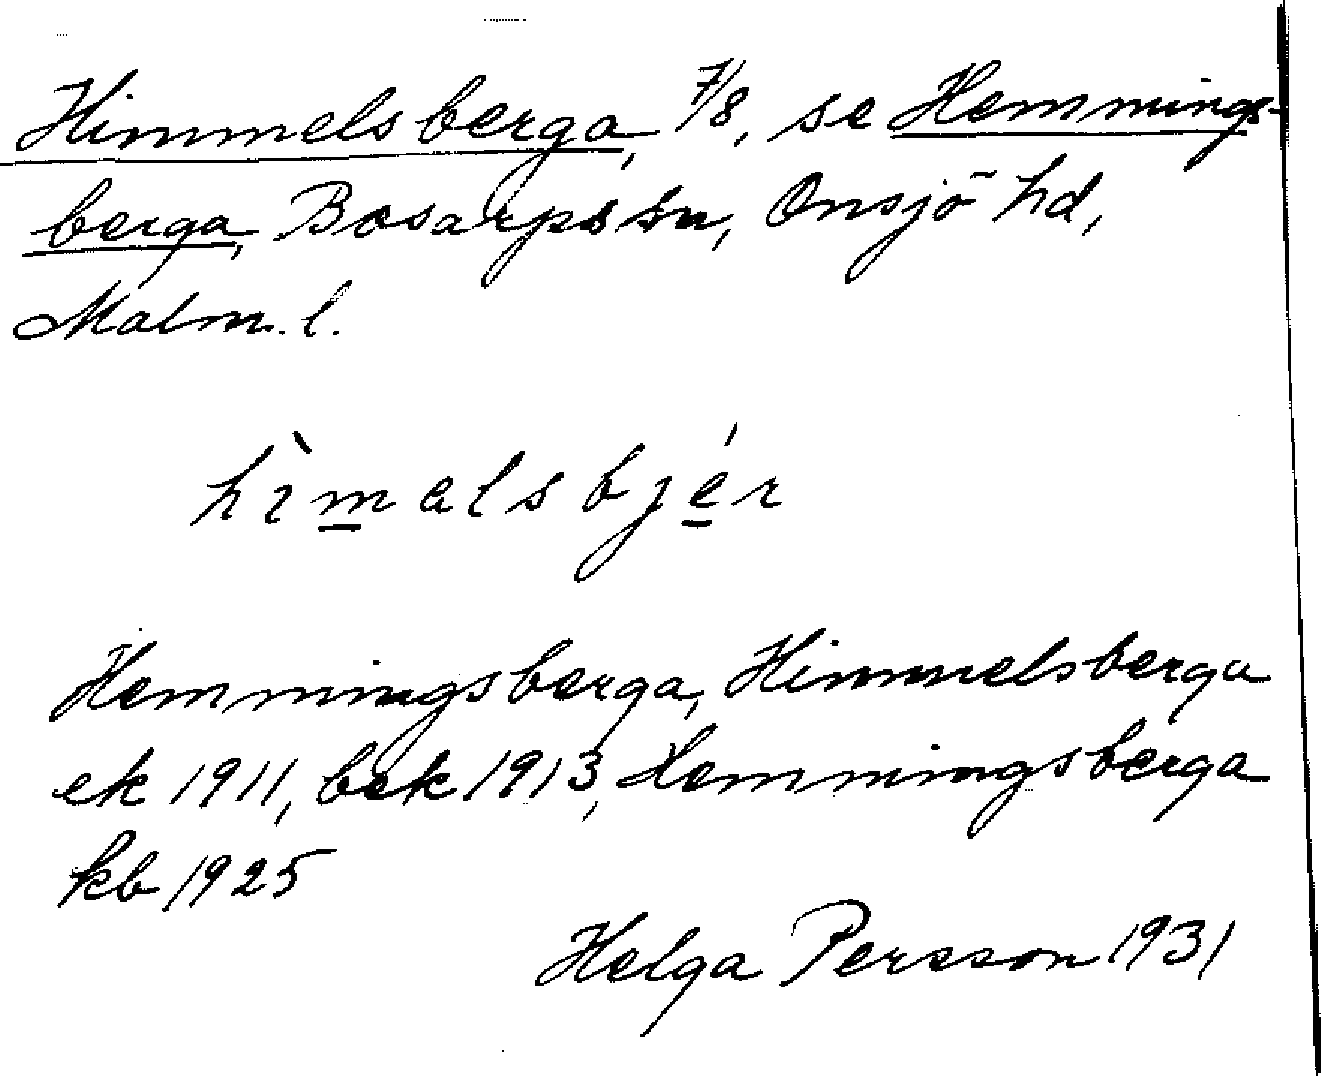 Himmelsberga, 7/8, se Hemmings-
berga, Bosarps sn, Onsjö hd,
Malm. l.
hìmalsbjér
Hemmingsberga, Himmelsberga
ek 1911, bek 1913, Hemmingsberga
kb 1925
Helga Persson 1931